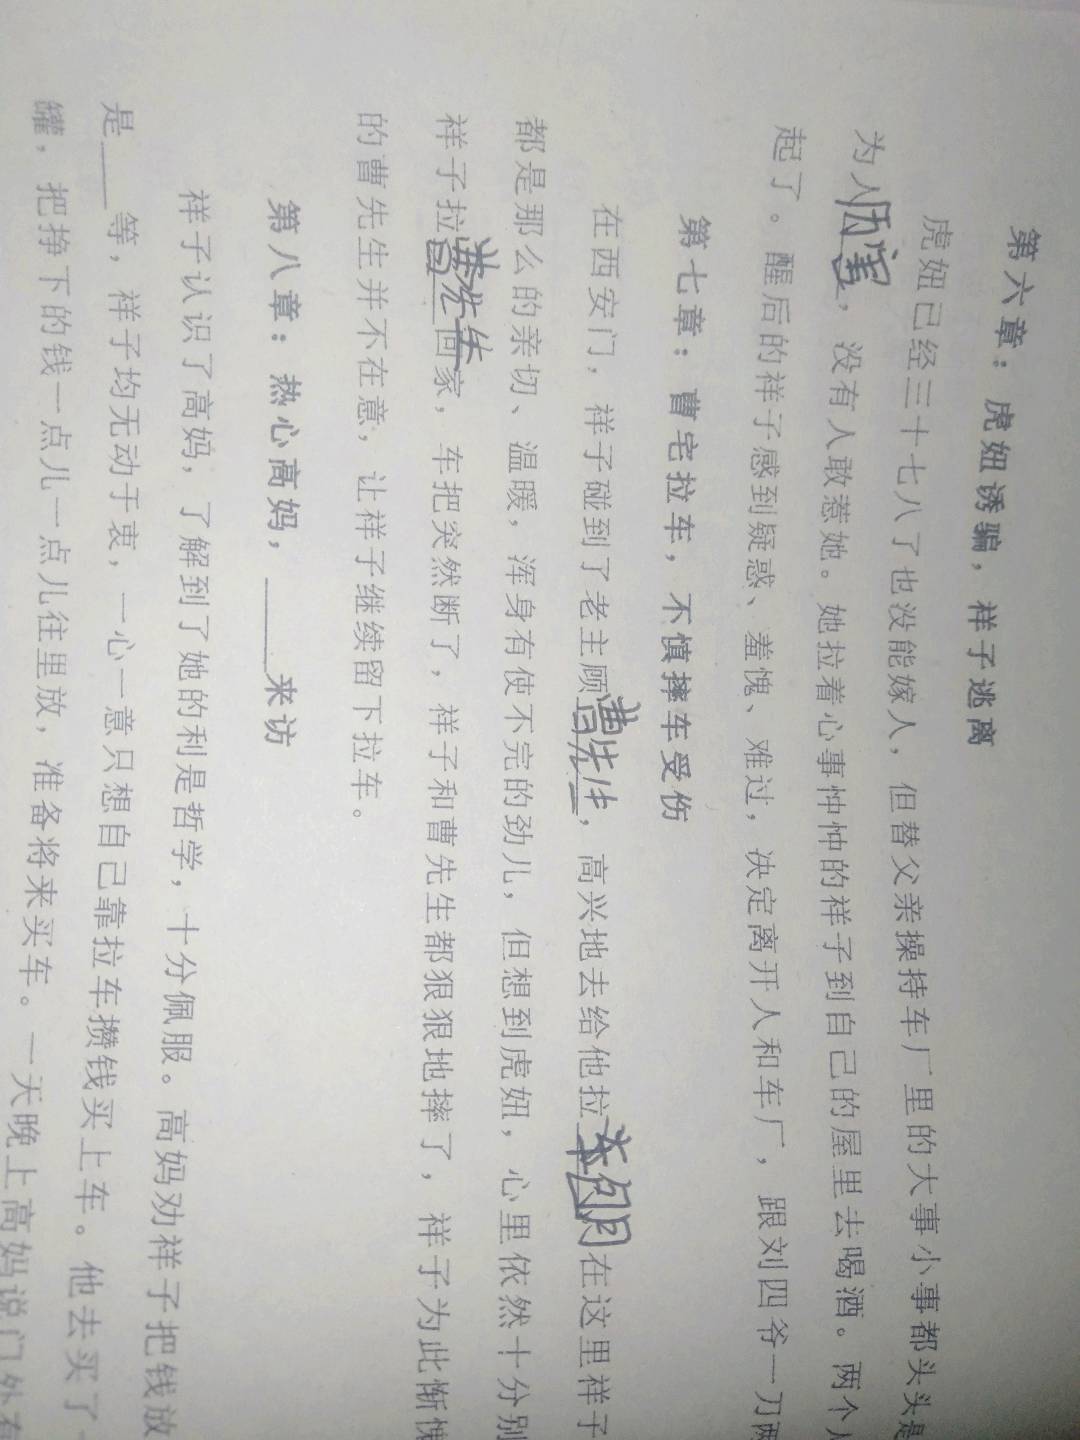 第六章：虎妞诱骗，祥子逃离
虎妞已经三十七八了也没能嫁人，但替父亲操持车厂里的大事小事都头头是
为人厉害，没有人敢惹她。她拉着心事忡忡的祥子到自己的屋里去喝酒。两个人
起了。醒后的祥子感到疑惑、羞愧、难过，决定离开人和车厂，跟刘四爷一刀两
第七章：曹宅拉车，不慎摔车受伤
在西安门，祥子碰到了老主顾曹先生，高兴地去给他拉车包月在这里祥子
都是那么的亲切、温暖，浑身有使不完的劲儿，但想到虎妞，心里依然十分别
祥子拉曹先生回家，车把突然断了，祥子和曹先生都狠狠地摔了，祥子为此惭愧
的曹先生并不在意，让祥子继续留下拉车。
第八章：热心高妈，____来访
祥子认识了高妈，了解到了她的利是哲学，十分佩服。高妈劝祥子把钱放
是____等，祥子均无动于衷，一心一意只想自己靠拉车攒钱买上车。他去买了一
罐，把挣下的钱一点儿一点儿往里放，准备将来买车。一天晚上高妈说门外有